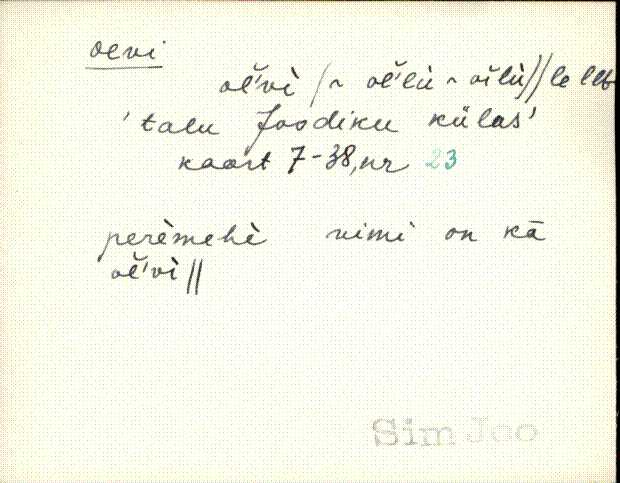 oevi
oĕ'vì (~ oĕ'lù ~ oĭlù)// le llt
'talu Joodiku külas'
kaart 7-38, nr 23
perèmehè nimi on kā
oĕ'vì ||
Sim Joo